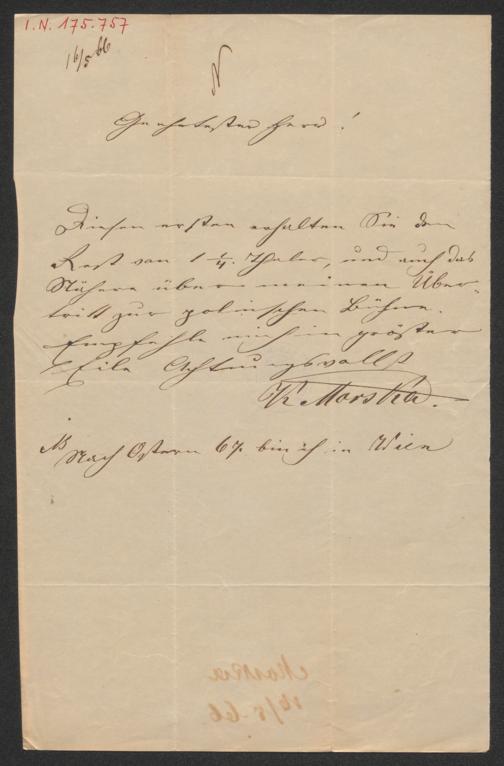 I.N. 175.757
16/5 66
N
Geehrtester Herr!
Diesen ersten erhalten Sie den
Rest von 1 1/4. Thaler, und auch das
Nähere über meinen Über-
tritt zur polnischen Bühne.
Empfehle mich in größter
Eile Achtungsvollst
K Morska.
NB Nach Ostern 67. bin ich in Wien
Morska
16/5 66